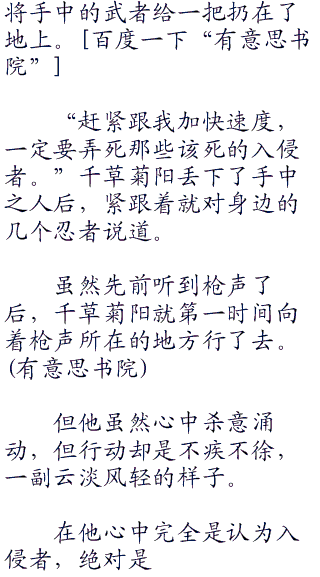 将手中的武者给一把扔在了
地上。[百度一下“有意思书
院”]
“赶紧跟我加快速度，
一定要弄死那些该死的入侵
者。”千草菊阳丢下了手中
之人后，紧跟着就对身边的
几个忍者说道。
虽然先前听到枪声了
后，千草菊阳就第一时间向
着枪声所在的地方行了去。
(有意思书院)
但他虽然心中杀意涌
动，但行动却是不疾不徐，
一副云淡风轻的样子。
在他心中完全是认为入
侵者，绝对是